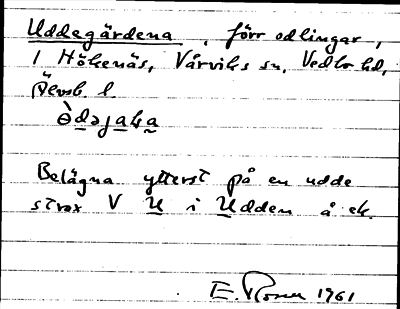 Uddegärdena, förr odlingar,
i Hökenäs, Vårviks sn, Vedbo hd,
Älvsb. l.
Belägna ytterst på en udde
strax V U i Udden å ek.
E. Rosen 1961